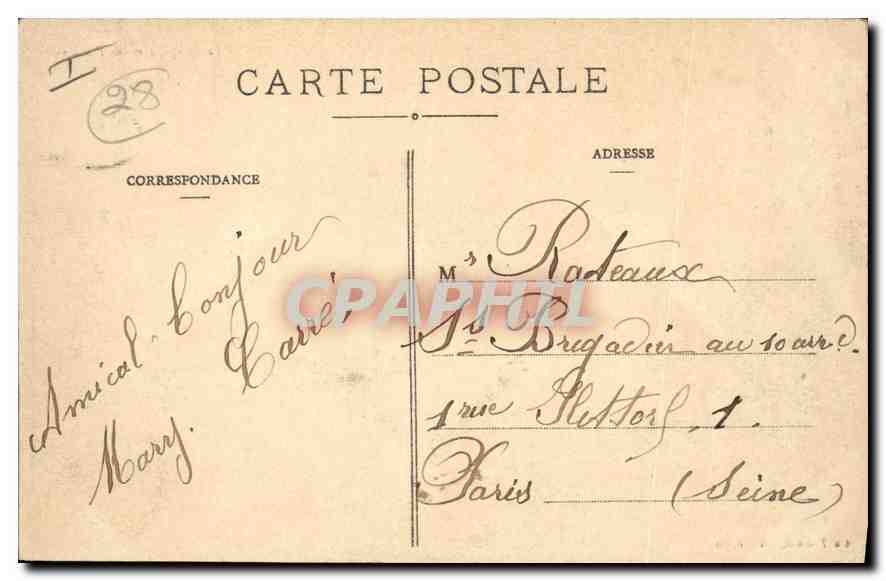 I
28
CARTE POSTALE
CORRESPONDANCE
Amical bonjour
Mary. Carré
ADRESSE
Mr Rateaux
Ss Brigadier au 10 arrd.
1 rue 1.
Paris (Seine)
CPAPHIL